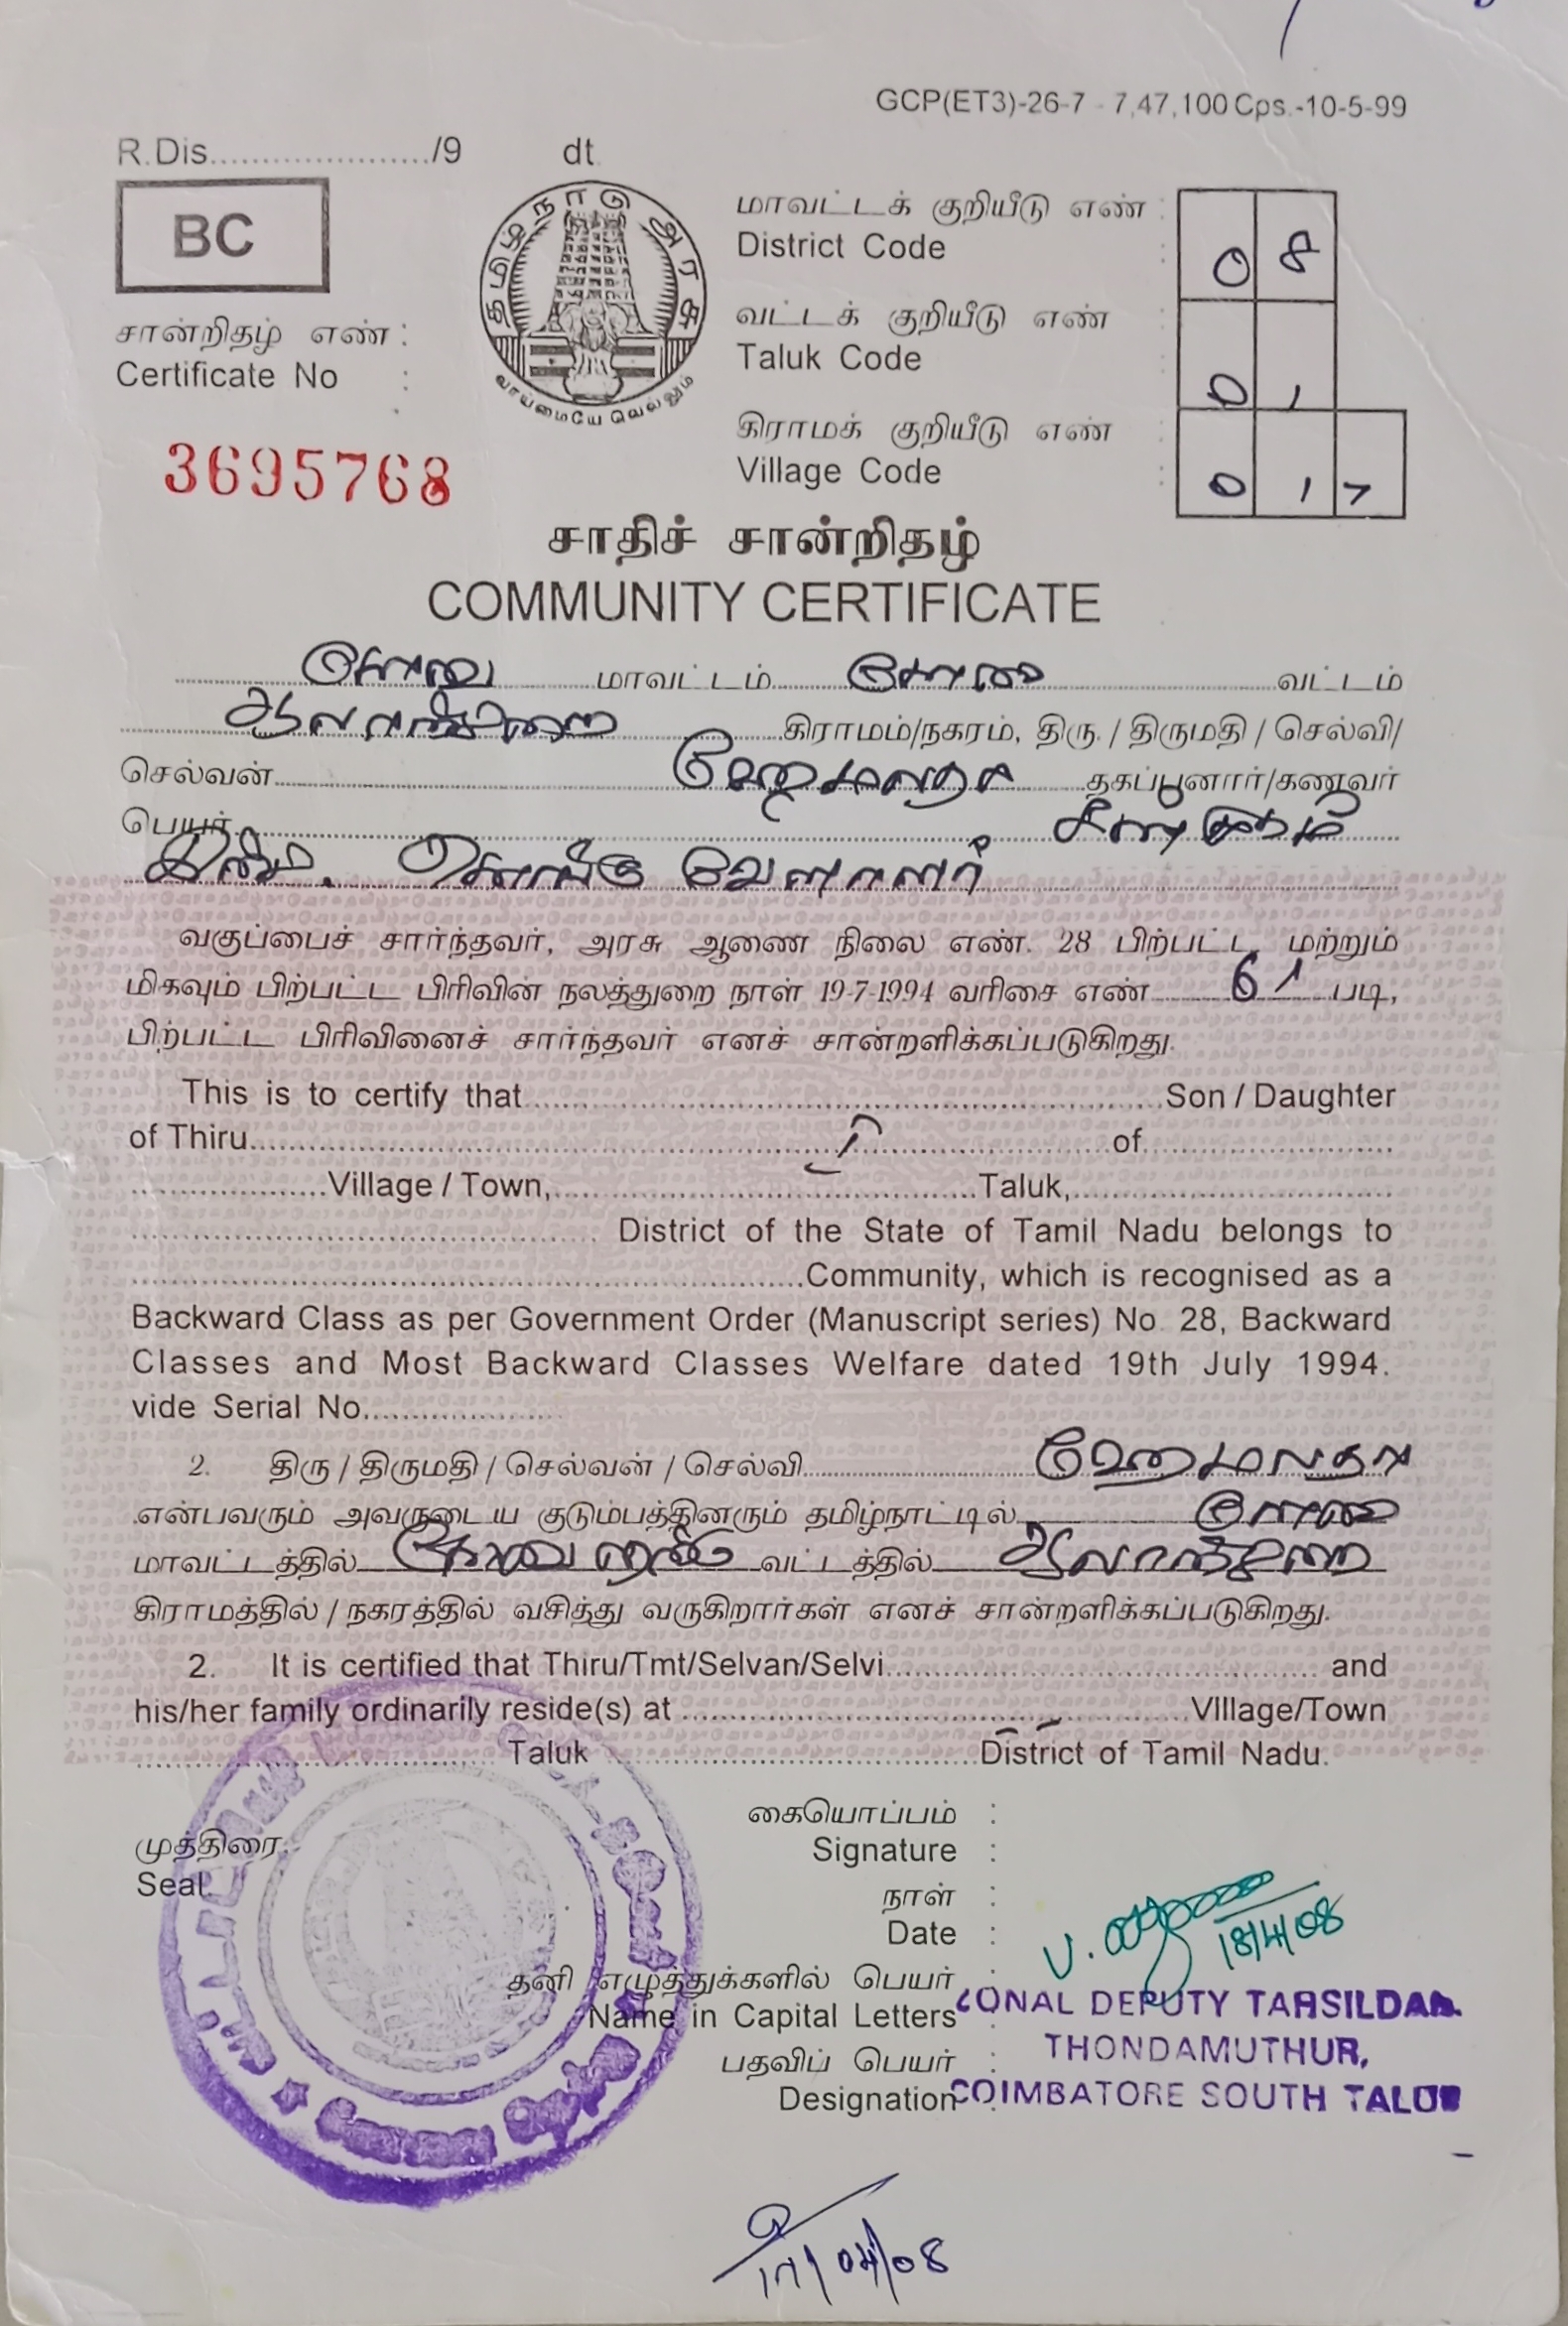 GCP(ET3)-26-7 - 7,47,100 Cps.-10-5-99
R.Dis...................../9 dt.
BC
தமிழ்நாடு அரசு
வாய்மையே வெல்லும்
மாவட்டக் குறியீடு எண் :
District Code : 0 8
சான்றிதழ் எண் :
Certificate No :
வட்டக் குறியீடு எண் :
Taluk Code : 0 1
3695768
கிராமக் குறியீடு எண் :
Village Code : 0 1 7
சாதிச் சான்றிதழ்
COMMUNITY CERTIFICATE
கோவை மாவட்டம் கோவை வட்டம்
ஆலாந்துறை கிராமம்/நகரம், திரு. / திருமதி / செல்வி/
செல்வன் ஹேமலதா தகப்பனார்/கணவர்
பெயர்
இந்து. கொங்கு வேளாளர்
வகுப்பைச் சார்ந்தவர், அரசு ஆணை நிலை எண். 28 பிற்பட்ட மற்றும்
மிகவும் பிற்பட்ட பிரிவின் நலத்துறை நாள் 19-7-1994 வரிசை எண் 61 படி,
பிற்பட்ட பிரிவினைச் சார்ந்தவர் எனச் சான்றளிக்கப்படுகிறது.
This is to certify that Son / Daughter
of Thiru of
Village / Town, Taluk,
District of the State of Tamil Nadu belongs to
Community, which is recognised as a
Backward Class as per Government Order (Manuscript series) No. 28, Backward
Classes and Most Backward Classes Welfare dated 19th July 1994.
vide Serial No.
2. திரு / திருமதி / செல்வன் / செல்வி ஹேமலதா
என்பவரும் அவருடைய குடும்பத்தினரும் தமிழ்நாட்டில் கோவை
மாவட்டத்தில் கோவை வட்டத்தில் ஆலாந்துறை
கிராமத்தில் / நகரத்தில் வசித்து வருகிறார்கள் எனச் சான்றளிக்கப்படுகிறது.
2. It is certified that Thiru/Tmt/Selvan/Selvi and
his/her family ordinarily reside(s) at VIllage/Town
Taluk District of Tamil Nadu.
கையொப்பம் :
முத்திரை
Seal
Signature :
நாள் :
Date : 18/4/08
தனி எழுத்துக்களில் பெயர் :
Name in Capital Letters ZONAL DEPUTY TAHSILDAR
பதவிப் பெயர் : THONDAMUTHUR,
Designation COIMBATORE SOUTH TALUK
17/04/08